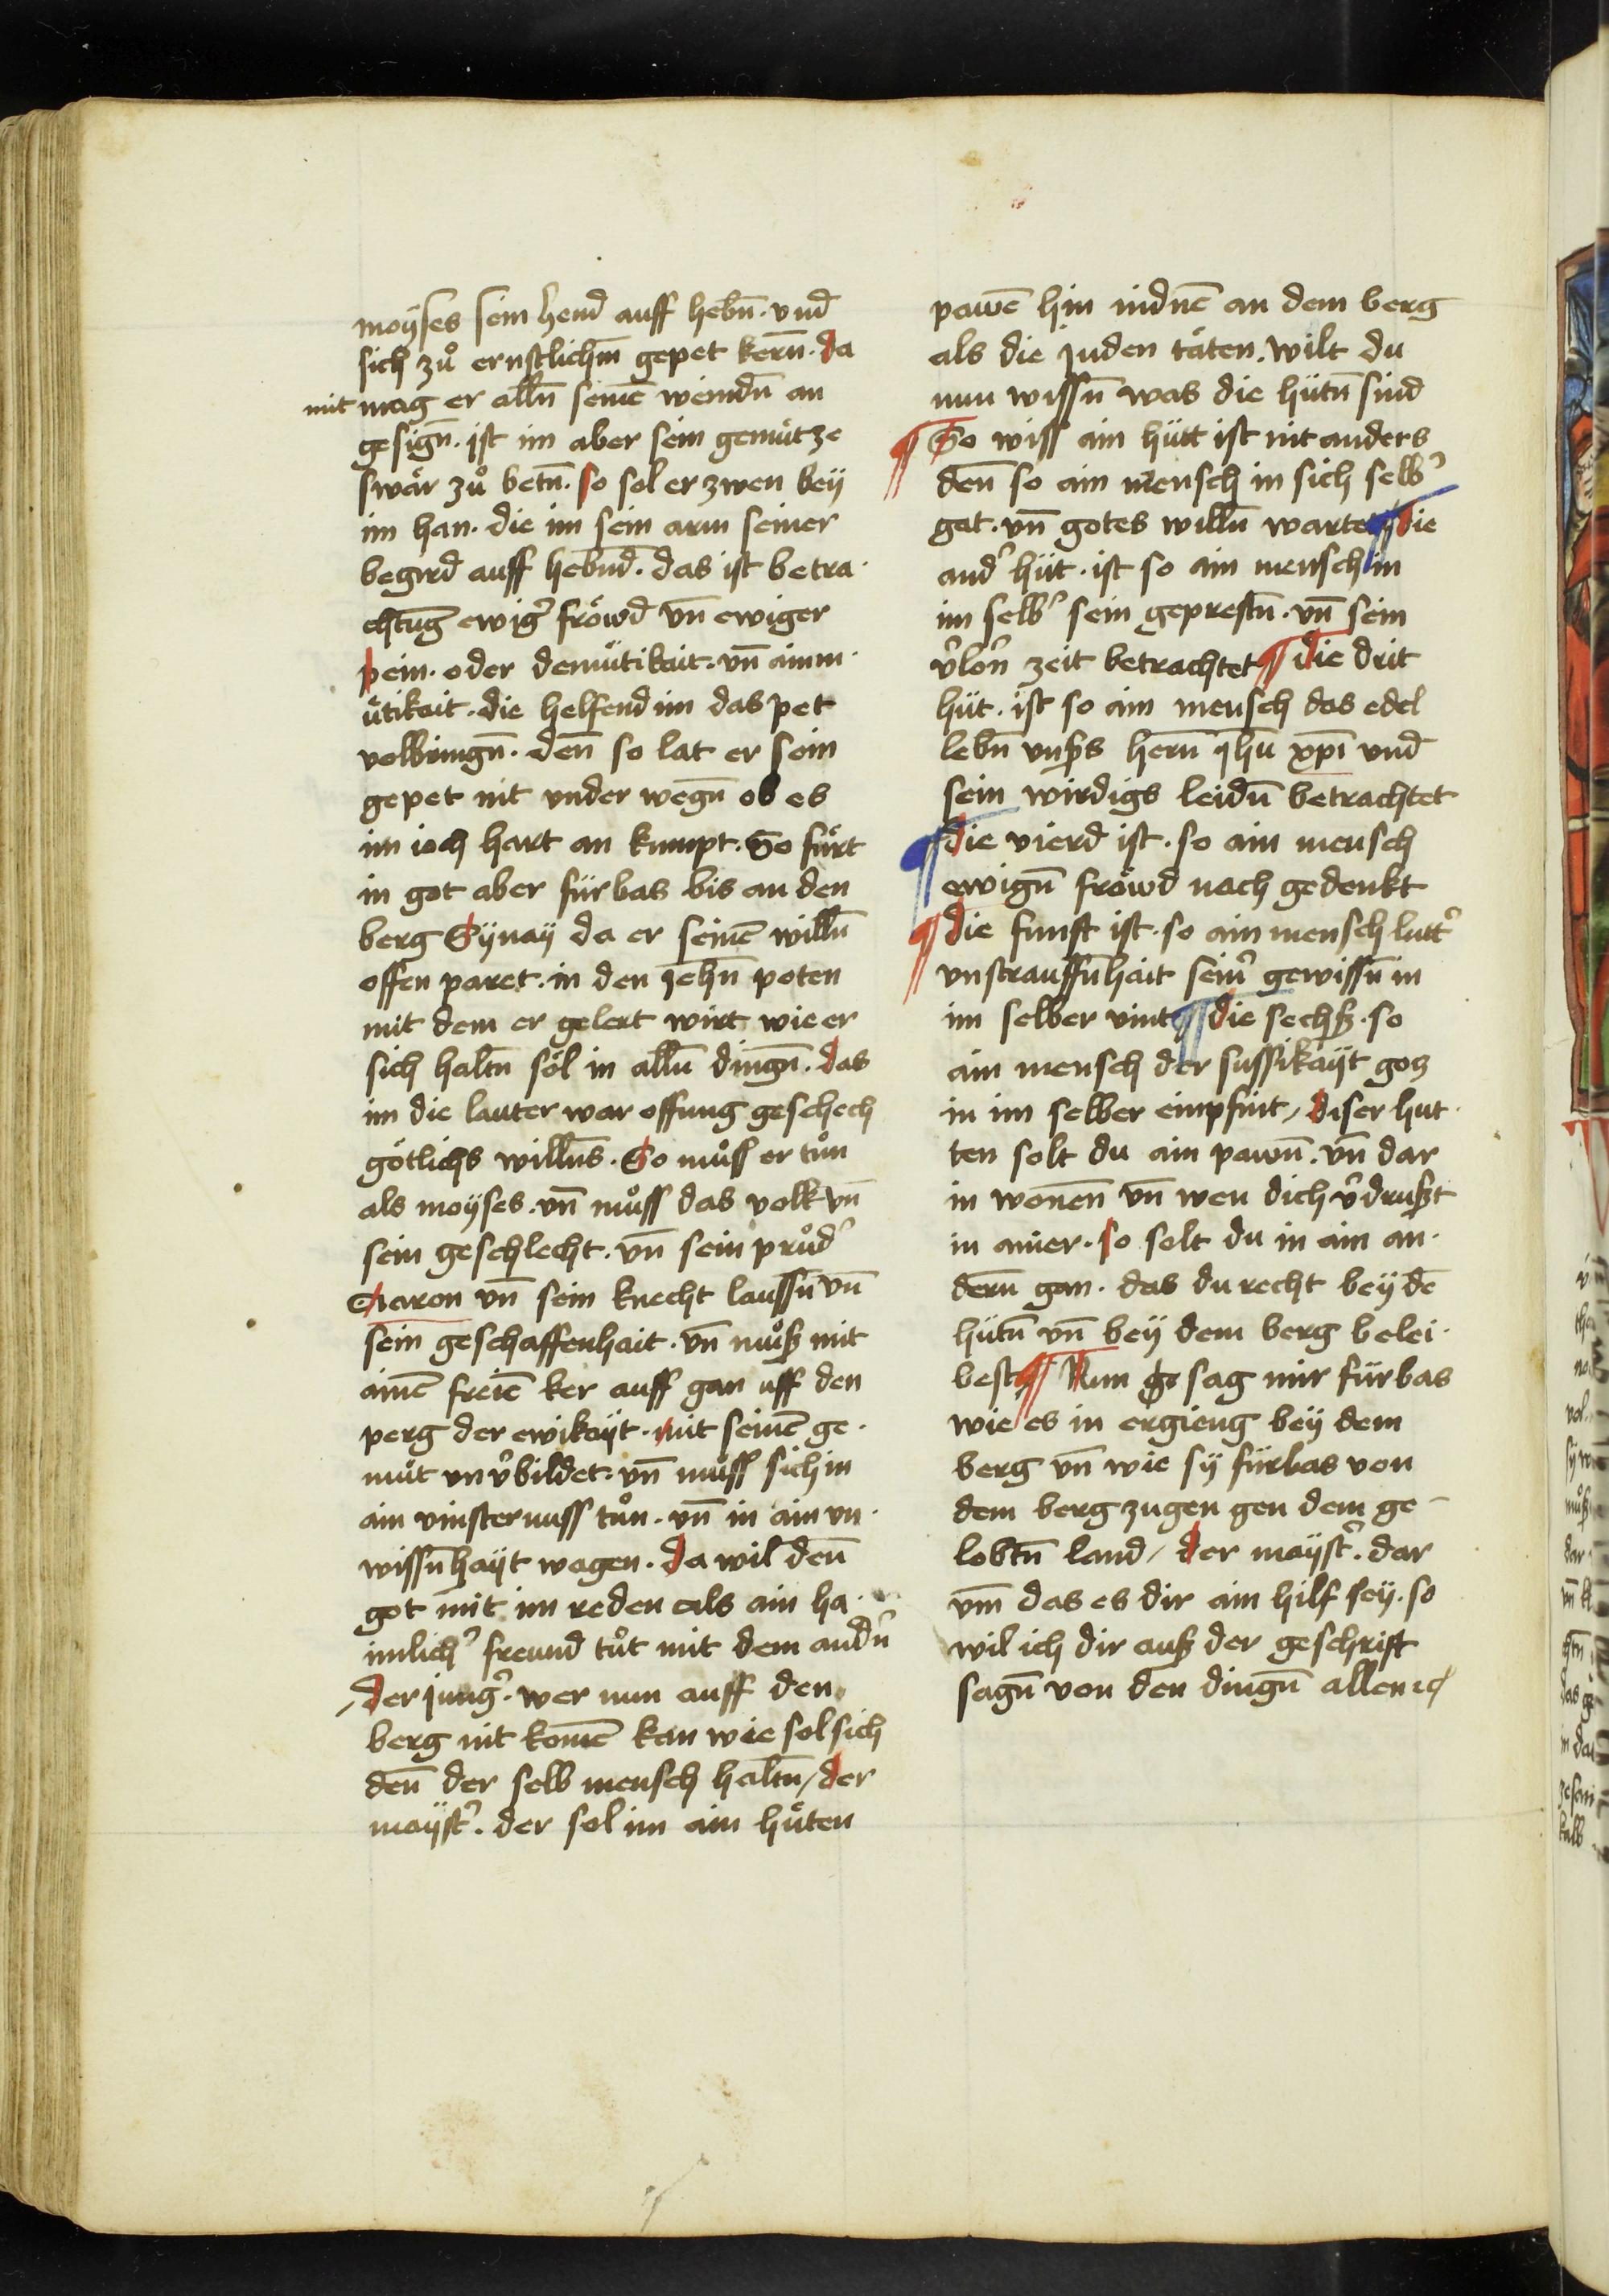 moÿses sein hend auff hebn̄ · vnd
sich zuͦ ernstlichm̄ gepet kern̄ · da
mit mag er alln̄ seinē weindn̄ an
gesign̄ · ist im aber sein gemüt ze
swär zuͦ betn̄ · so sol er zwen beÿ
im han · die im sein arm seiner
begird auff hebnd̄ · das ist betra ·
chtung ewig᷑ fröwd vn̄ ewiger
pein · oder demütikait · vn̄ ainm ·
ütikait · die helfend im das pet
volbringn̄ · den̄ so lat er sein
gepet nit vnder wegn̄ ob es
im ioch hart an kumpt · So fürt
in got aber fürbas bis an den
berg Sÿnaÿ da er seinē willn̄
offen paret · in den zehn̄ poten
mit dem er gelert wirt wie er
sich haltn̄ söl in alln̄ dingn̄ · das
im die lauter war offung geschech
götlichs willns̄ · So muͦss er tuͦn
als moÿses · vn̄ muͦss das volk vn̄
sein geschlecht · vn̄ sein pruͦd᷑
Aaron vn̄ sein knecht laussn̄ vn̄
sein geschaffenhait · vn̄ muͦß mit
ainē freiē ker auff gan uff den
perg der ewikaÿt · mit seinē ge ·
müt vn v᷑bildet · vn̄ muͦss sich in
ain vinsternuss tuͦn · vn̄ in ain vn ·
wissn̄haÿt wagen · da wil den̄
got mit im reden als ain ha ·
imlich᷑ freund tuͦt mit dem andn᷑
der jung᷑ · wer nun auff den
berg nit komē kan wie sol sich
den̄ der selb mensch haltn̄ / der
maÿst᷑ · der sol im ain hüten
pawē hin nidnē an dem berg
als die juden täten · wilt du
nun wissn̄ was die hütn̄ sind
¶ So wiss ain hütt ist nit anders
den̄ so ain mensch in sich selb᷑
gat · vn̄ gotes willn̄ wartet ¶ die
and᷑ hüt · ist so ain mensch in
im selb᷑ sein geprestn̄ · vn̄ sein
v᷑lorn̄ zeit betrachtet ¶ die drit
hüt · ist so ain mensch das edel
lebn̄ vnsers hern̄ jhū xpī vnd
sein wirdigs leidn̄ betrachtet
¶ die vierd ist · so ain mensch
ewign̄ fröwd nach gedenkt
¶ die funft ist · so ain mensch lutt᷑
vnstrauffn̄hait sein᷑ gewissn̄ in
im selber vint ¶ die sechß · so
ain mensch der sussikaÿt gotz
in im selber empfint / diser hut ·
ten solt du ain pawn̄ · vn̄ dar
in wonen̄ vn̄ wen dich v᷑drußt
in ainer · so solt du in ain an ·
dern̄ gan · das du recht beÿ dē
hütn̄ vn̄ beÿ dem berg belei ·
best ¶ Nun sag mir fürbas
wie es in ergieng beÿ dem
berg vn̄ wie sÿ fürbas von
dem berg zugen gen dem ge -
lobtn̄ land / der maÿst᷑ · dar
vm̄ das es dir ain hilf seÿ · so
wil ich dir auß der geschrift
sagn̄ von den dingn̄ allen ꝛc